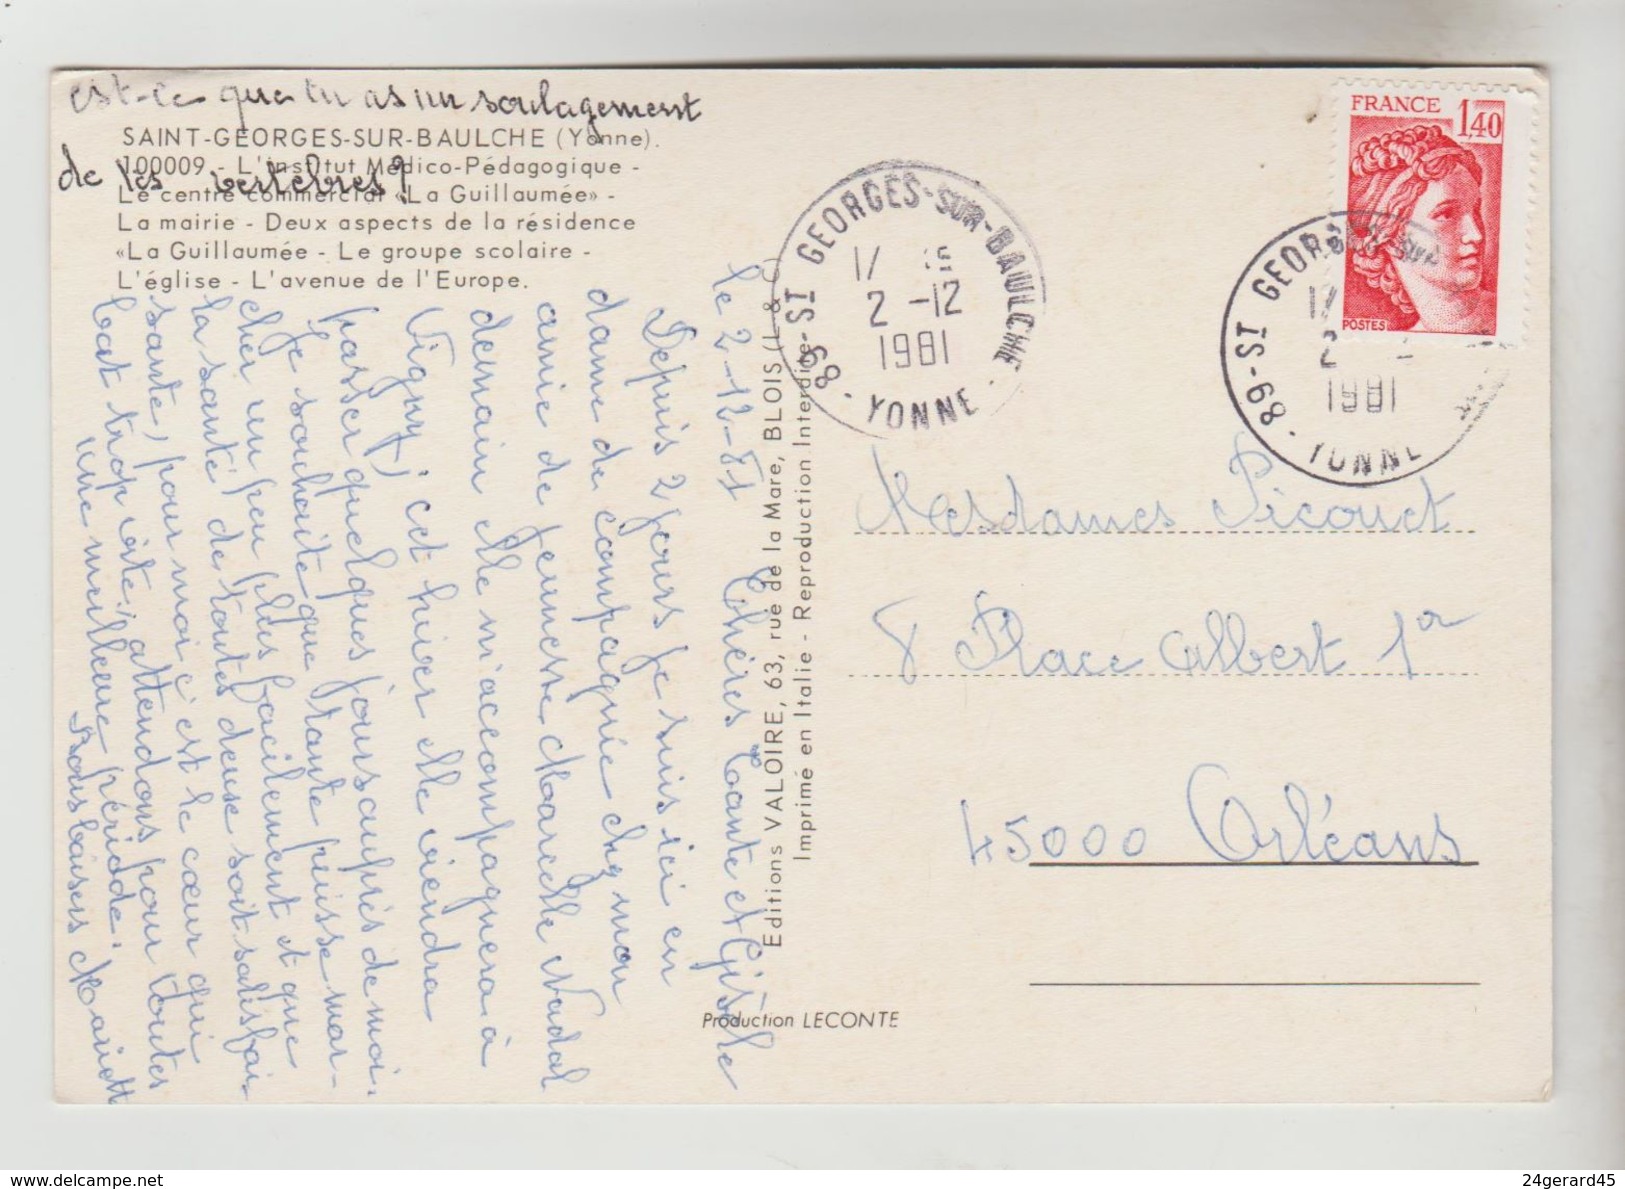 est-ce que tu as un soulagement
de tes vertèbres?
SAINT-GEORGES-SUR-BAULCHE (Yonne).
100009 - L'institut Médico-Pédagogique -
Le centre commercial «La Guillaumée» -
La mairie - Deux aspects de la résidence
«La Guillaumée - Le groupe scolaire -
L'église - L'avenue de l'Europe.
le 2-12-81 Chères Tante et Gisèle
Depuis 2 jours je suis ici en
dame de compagnie chez mon
amie de jeunesse Marcelle Nadal
demain elle m'accompagnera à
Vigny; cet hiver elle viendra
passer quelques jours auprès de moi.
Je souhaite que Tante puisse mar-
cher un peu plus facilement et que
la santé de toutes deux soit satisfai
sante, pour moi c'est le cœur qui
bat trop vite, attendons pour toutes
une meilleure période.
Bons baisers
Editions VALOIRE, 63, rue de la Mare, BLOIS (L. & C.)
Imprimé en Italie - Reproduction Interdite
Production LECONTE
89-ST GEORGES-SUR-BAULCHE
2-12
1981
YONNE
FRANCE
1,40
POSTES
89-ST GEORG
1981
YONNE
Mesdames Picouet
8 Place Albert 1er
45000 Orléans
delcampe.net
24gerard45